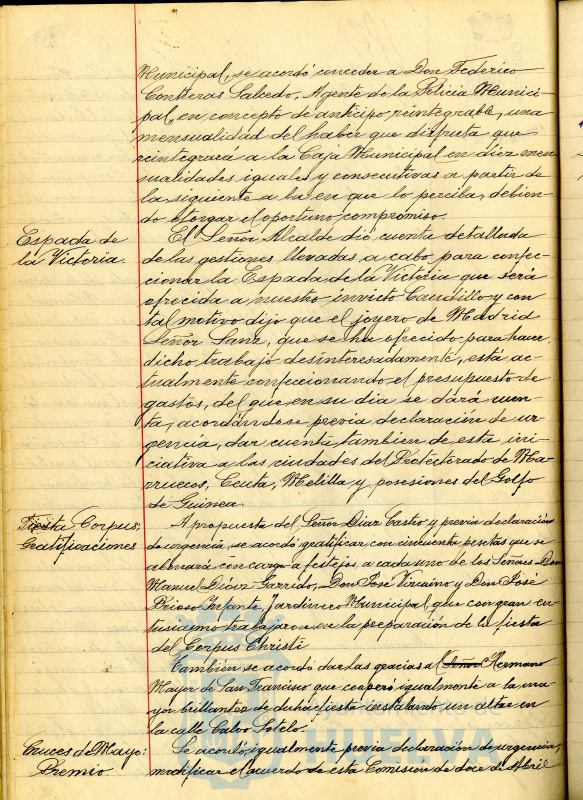 Municipal, se acordó conceder a Don Federico
Contreras Salcedo, Agente de la Policía Munici-
pal, en concepto de anticipo reintegrable, una
mensualidad del haber que disfruta que
reintegrará a la Caja Municipal en diez men
sualidades iguales y consecutivas a partir de
la siguiente a la en que lo perciba, debien-
do otorgar el oportuno compromiso.
Espada de
la Victoria.
El Señor Alcalde dió cuenta detallada
de las gestiones llevadas a cabo para confec-
cionar la Espada de la Victoria que será
ofrecida a nuestro invicto Caudillo y con
tal motivo dijo que el joyero de Madrid
Señor Sanz, que se ha ofrecido para hacer
dicho trabajo desinteresadamente, está ac-
tualmente confeccionando el presupuesto de
gastos, del que en su dia se dará cuen-
ta, acordándose previa declaración de ur-
gencia, dar cuenta tambien de esta ini-
ciativa a las ciudades del Protectorado de Ma-
rruecos, Ceuta, Melilla y posesiones del Golfo
de Guinea.
Fiesta Corpus:
Gratificaciones
A propuesta del Señor Diaz Castro y previa declaración
de urgencia, se acordó gratificar con cincuenta pesetas que se
abonará con cargo a festejos a cada uno de los Señores Don
Manuel Diaz Garrido, Don José Vizcaino y Don José
Brioso Infante, Jardinero Municipal, que con gran en
tusiasmo trabajaron en la preparación de la fiesta
del Corpus Christi
Tambien se acordó dar las gracias al Señor Hermano
Mayor de San Francisco que cooperó igualmente a la ma
yor brillantez de dicha fiesta instalando un altar en
la calle Calvo Sotelo.
Cruces de Mayo:
Premio.
Se acordó, igualmente previa declaración de urgencia,
modificar el acuerdo de esta Comisión de doce de Abril
HUELVA